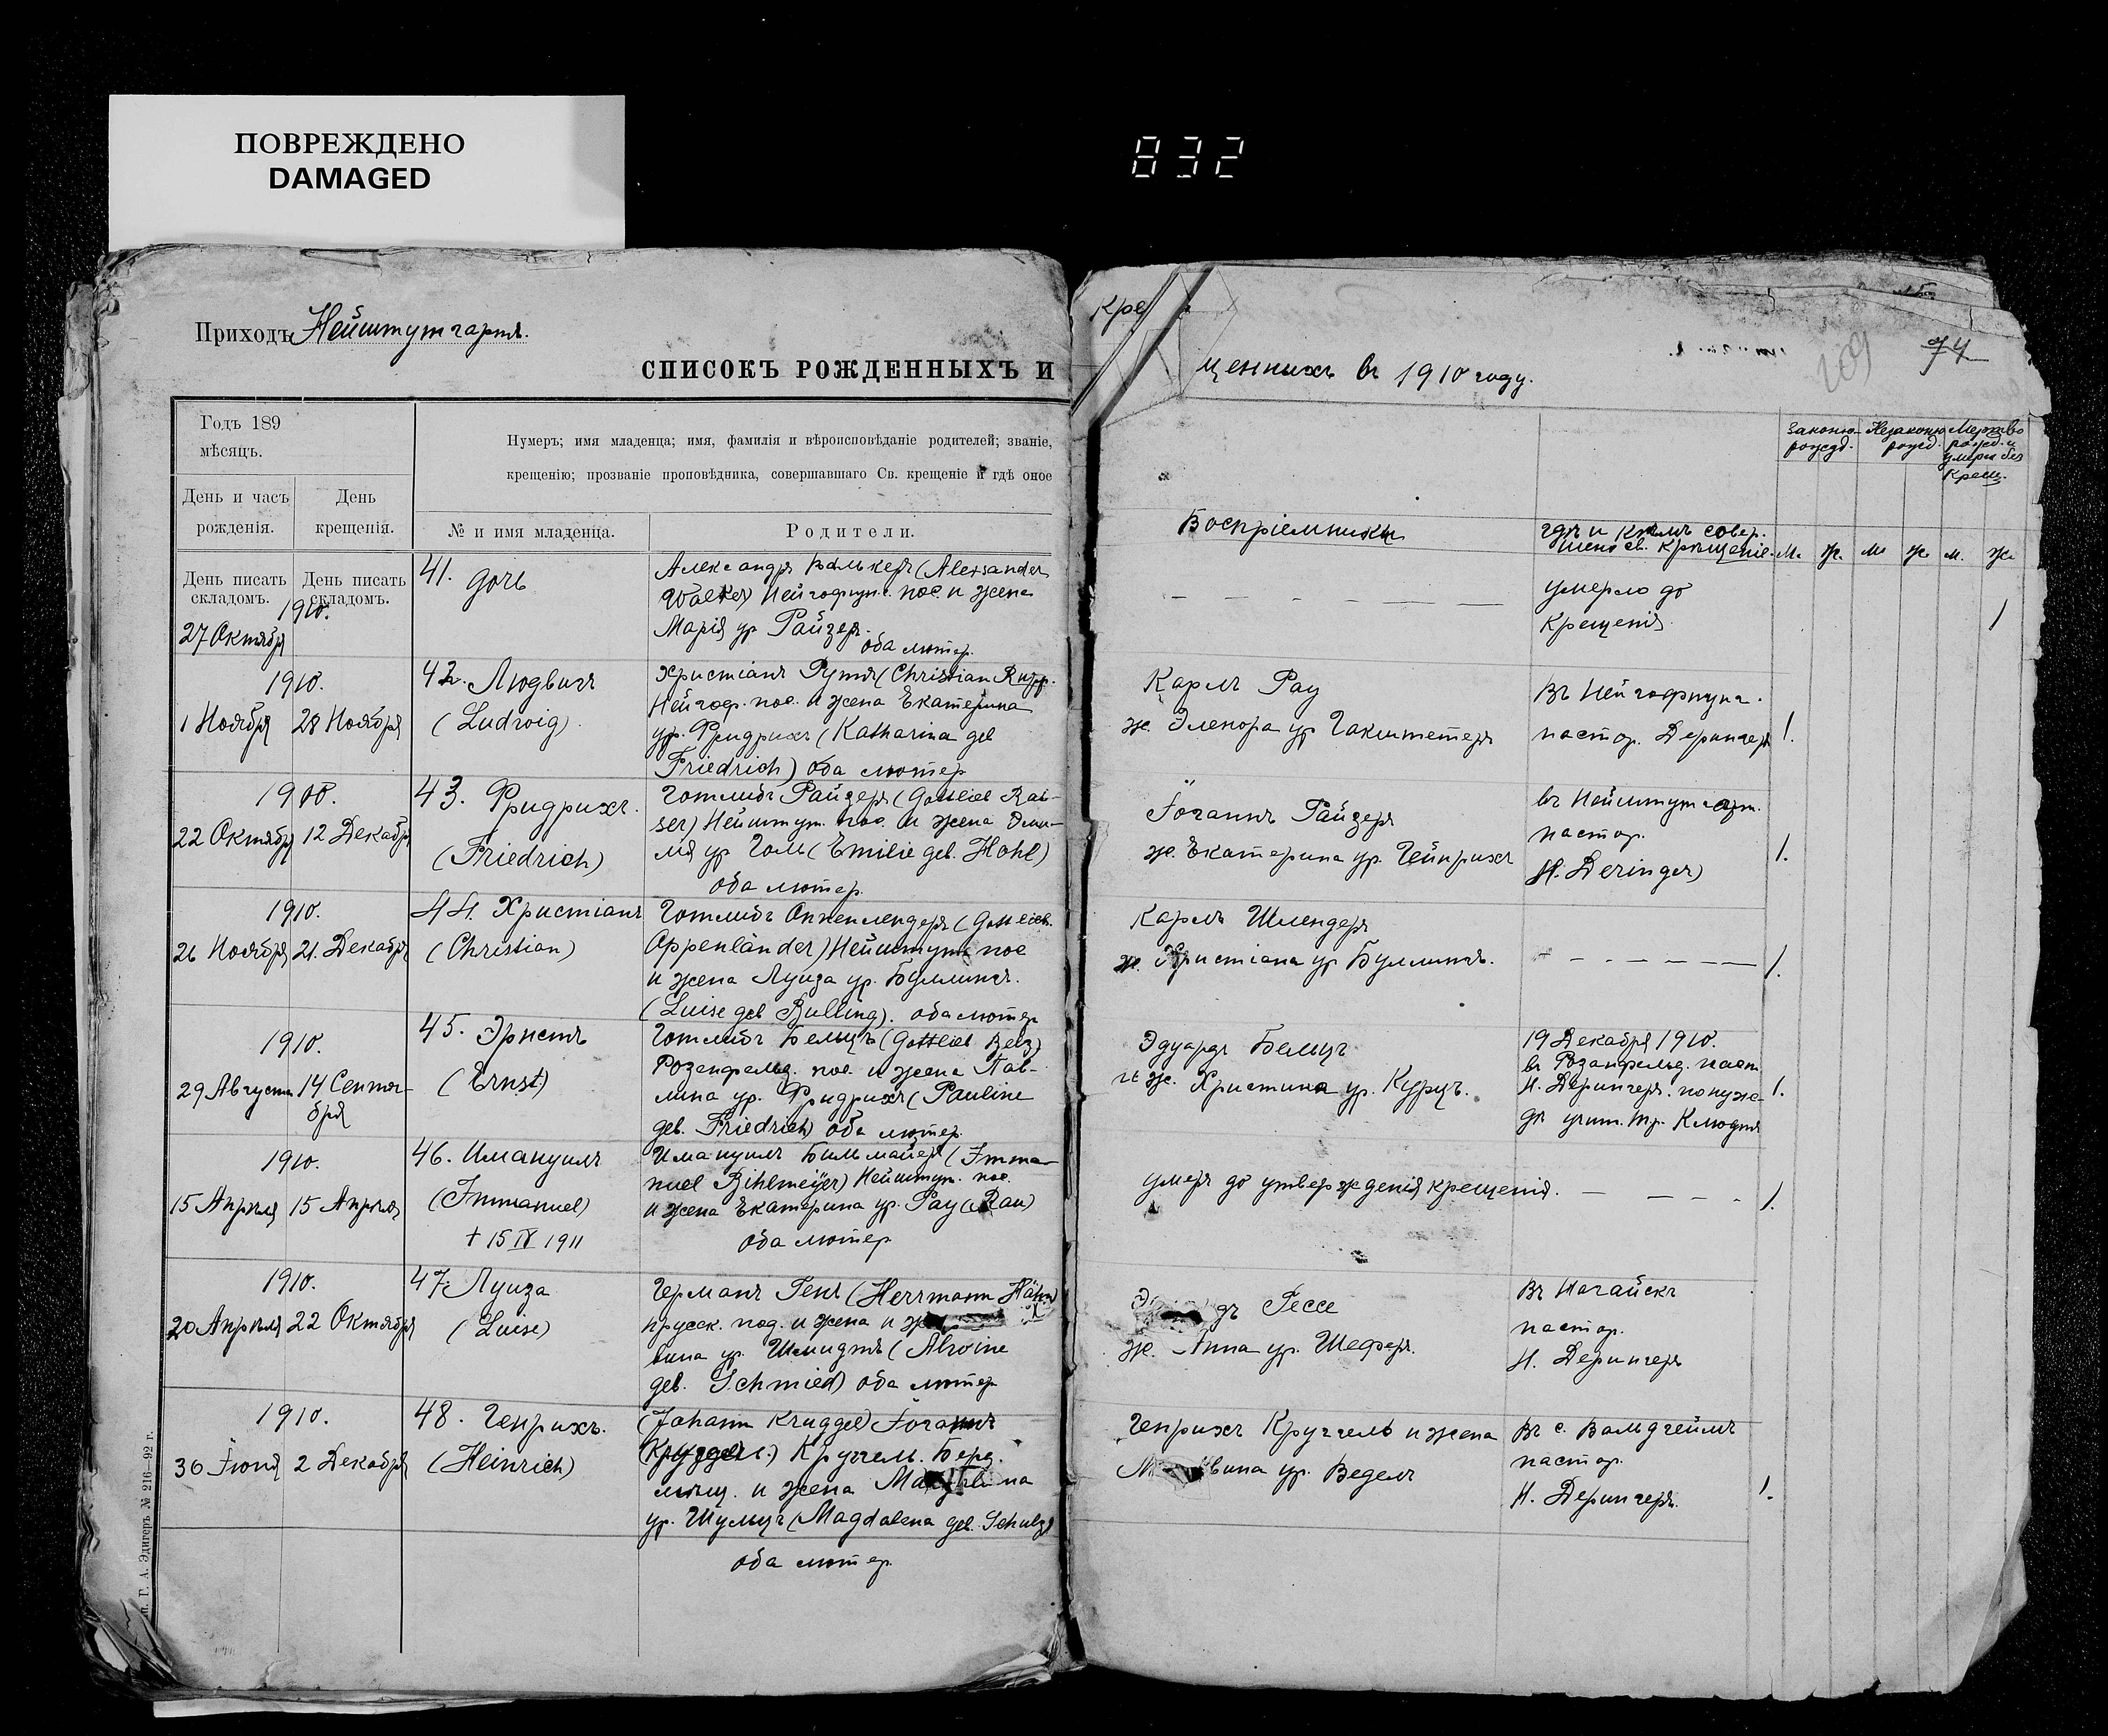 ПОВРЕЖДЕНО
DAMAGED
832
Приходъ Нейштутгартъ.
СПИСОКЪ РОЖДЕННЫХЪ И
Кре
щенныхъ въ 1910 году.
74
209
Годъ 189
мѣсяцъ.
Нумеръ; имя младенца; имя, фамилія и вѣроисповѣданіе родителей; званіе,
крещенію; прозваніе проповѣдника, совершавшаго Св. крещеніе и гдѣ оное
День и часъ
рожденія.
День
крещенія.
№ и имя младенца.
Родители.
Воспріемники
гдѣ и кѣмъ совер.
шено св. крещеніе.
Законно-
рожд.
Незаконно
рожд.
Мертво
рожд. и
умерш. без
Крещ.
м. ж. м. ж. м. ж.
День писать
складомъ.
День писать
складомъ.
1910.
27 Октября
41. дочь
Александръ Валькеръ (Alexander
Walker) Нейгофнунг. пос. и жена
Марія ур Райзеръ.
оба лютер.
умерло до
крещенія.
1
1910.
1 Ноября
28 Ноября
42. Людвигъ
(Ludwig).
Христіанъ Руппъ (Christian Rupp.
Нейгоф. пос. и жена Екатерина
ур. Фридрихъ (Katharina geb
Friedrich) оба лютер
Карлъ Рау
ж. Элеонора ур Гакштетеръ
Въ Нейгофнунг.
пастор. Дерингеръ
1.
1900.
22 Октября
12 Декабря
43. Фридрихъ.
(Friedrich)
Готлибъ Райзеръ (Gottlieb Rai-
ser) Нейштут. пос. и жена Эми-
лія ур Голь (Emilie geb. Hohl)
оба лютер.
Іоганнъ Райзеръ
ж. Екатерина ур. Гейнрихъ
въ Нейштутгарт.
пастор.
H. Deringer)
1.
1910.
26 Ноября
21. Декабря
44. Христіанъ
(Christian)
Готлибъ Оппенлендеръ (Gottlieb.
Oppenländer) Нейштутг пос
и жена Луиза ур. Буллингъ.
(Luise geb Bulling). оба лютер
Карлъ Шлендеръ
ж. Христіана ур Буллингъ.
1.
1910.
29 Августа
14 Сентя-
бря
45. Эрнстъ
(Ernst)
Готлибъ Бельцъ (Gottlieb Belz)
Розенфельд. пос. и жена Пав-
лина ур. Фридрихъ (Pauline
geb. Friedrich) оба лютер.
Эдуардъ Бельцъ
и ж. Христина ур. Курцъ.
19 Декабря 1910.
въ Розенфельд. паст.
Н. Дерингеръ. по нуж-
дѣ учит. тр. Клюдтъ
1.
1910.
15 Апрѣля
15 Апрѣля
46. Имануилъ
(Immanuel)
+ 15 IV 1911
Имануилъ Бильмайеръ (Imma-
nuel Bihlmeÿer) Нейштут. пос.
и жена Екатерина ур. Рау (Rau)
оба лютер
умеръ до утвержденія крещенія.
1.
1910.
20 Апрѣля
22 Октября
47. Луиза
(Luise)
Германъ Генъ (Herrmann Hähn)
прусск. под. и жена
вина ур. Шмидтъ (Alwine
geb. Schmied) оба лютер
дъ Гессе
ж. Анна ур. Шеферъ.
Въ Ногайскъ
пастор.
Н. Дерингеръ
1910.
30 Іюня
2 Декабря
48. Генрихъ.
(Heinrich)
(Johann Kruggel) Іоганнъ
Круггель. Берд.
мѣщ. и жена
ур. Шульцъ (Magdalena geb. Schulz)
оба лютер.
Генрихъ Круггель и жена
вина ур. Ведель
Въ с. Вальдгеймъ
пастор.
Н. Дерингеръ.
1.
п. Г. А. Эдигеръ № 216—92 г.